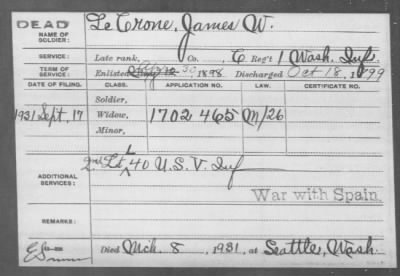 DEAD
NAME OF SOLDIER: LeCrone, James W.
SERVICE: Late rank, Co. C Reg't 1 Wash. Inf
TERM OF SERVICE: Enlisted 30 1898 Discharged Oct 18, 1899
DATE OF FILING. CLASS. APPLICATION NO. LAW. CERTIFICATE NO.
Soldier,
1931 Sept, 17 Widow, 1702 465 M/26
Minor,
ADDITIONAL SERVICES: 2nd Lt L 40 U.S.V. Inf
War with Spain
REMARKS:
Died Mch. 8, 1931, at Seattle, Wash.